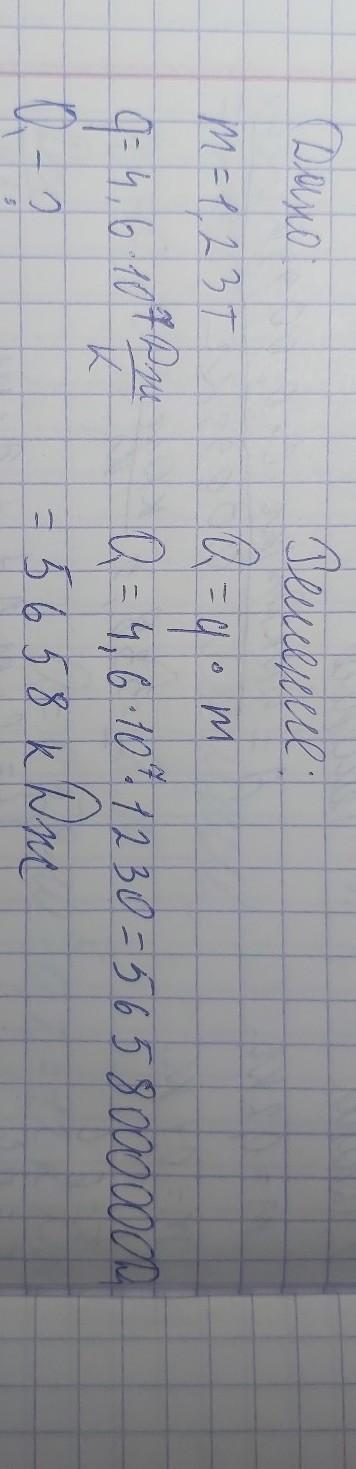 Дано:
m = 1,23 т
q = 4,6 · 10⁷ Дж/к
Q - ?
Решение:
Q = q · m
Q = 4,6 · 10⁷ · 1230 = 56580000000
= 5658 кДж